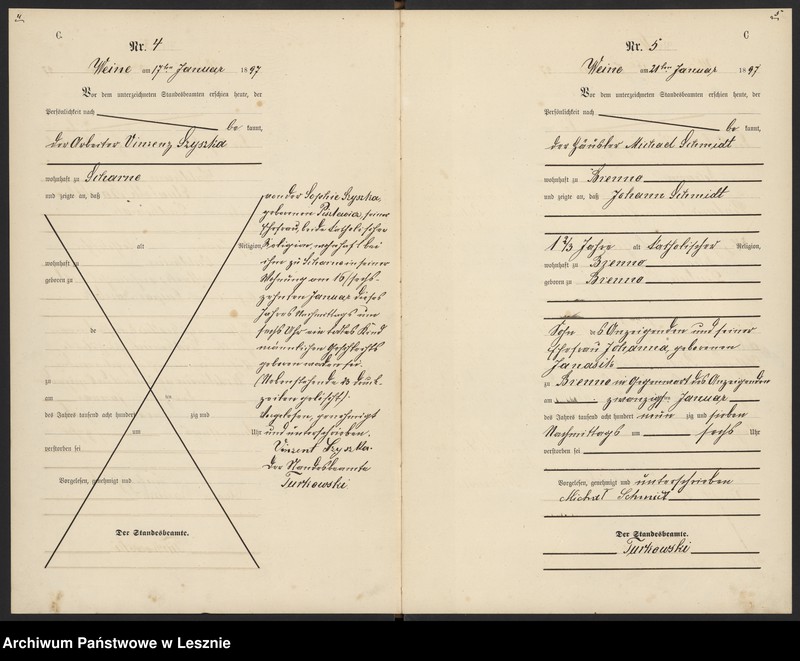 4
C.
Nr. 4
Weine am 17ten Januar 1897
Vor dem unterzeichneten Standesbeamten erschien heute, der
Persönlichkeit nach
be kannt,
der Arbeiter Vinzenz Szyszka
wohnhaft zu Scharne
und zeigte an, daß
von der Sophie Szyszka,
geborenen, seiner
Ehefrau, beide katholischer
alt Religion,
Religion, wohnhaft bei
wohnhaft zu
ihm zu Scharne in seiner
geboren zu
Wohnung am 16/sechs-
zehnten Januar dieses
Jahres Nachmittags um
de
sechs Uhr ein todtes Kind
männlichen Geschlechts
geboren worden sei.
zu
Nebenstehende Druck-
am ten
zeilen gelöscht.
des Jahrs tausend acht hundert zig und
Vorgelesen, genehmigt
um Uhr
und unterschrieben.
verstorben sei
Vinzent Szyszka.
Der Standesbeamte
Vorgelesen, genehmigt und
Turkowski
Der Standesbeamte.
5
C
Nr. 5
Weine am 21ten Januar 1897
Vor dem unterzeichneten Standesbeamten erschien heute, der
Persönlichkeit nach
be kannt,
der Häusler Michael Schmidt
wohnhaft zu Brenno
und zeigte an, daß Johann Schmidt
1 2/3 Jahre alt katholischer Religion,
wohnhaft zu Brenno
geboren zu Brenno
Sohn des Anzeigenden und seiner
Ehefrau Johanna, geborenen
zu Brenno in Gegenwart des Anzeigenden
am zwanzigsten Januar
des Jahrs tausend acht hundert neun zig und sieben
Nachmittags um sechs Uhr
verstorben sei
Vorgelesen, genehmigt und unterschrieben
Michał Schmidt
Der Standesbeamte.
Turkowski
Archiwum Państwowe w Lesznie